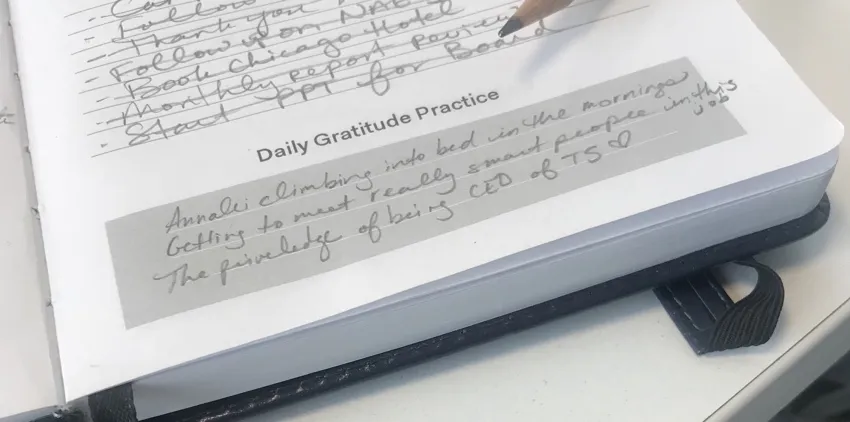 - Follow
- Thank you
- Follow up on NAB
- Book Chicago Hotel
- Monthly report review
- Start PPT for Board
Daily Gratitude Practice
Annalei climbing into bed in the mornings
Getting to meet really smart people in this job
The priveledge of being CEO of TS ♡